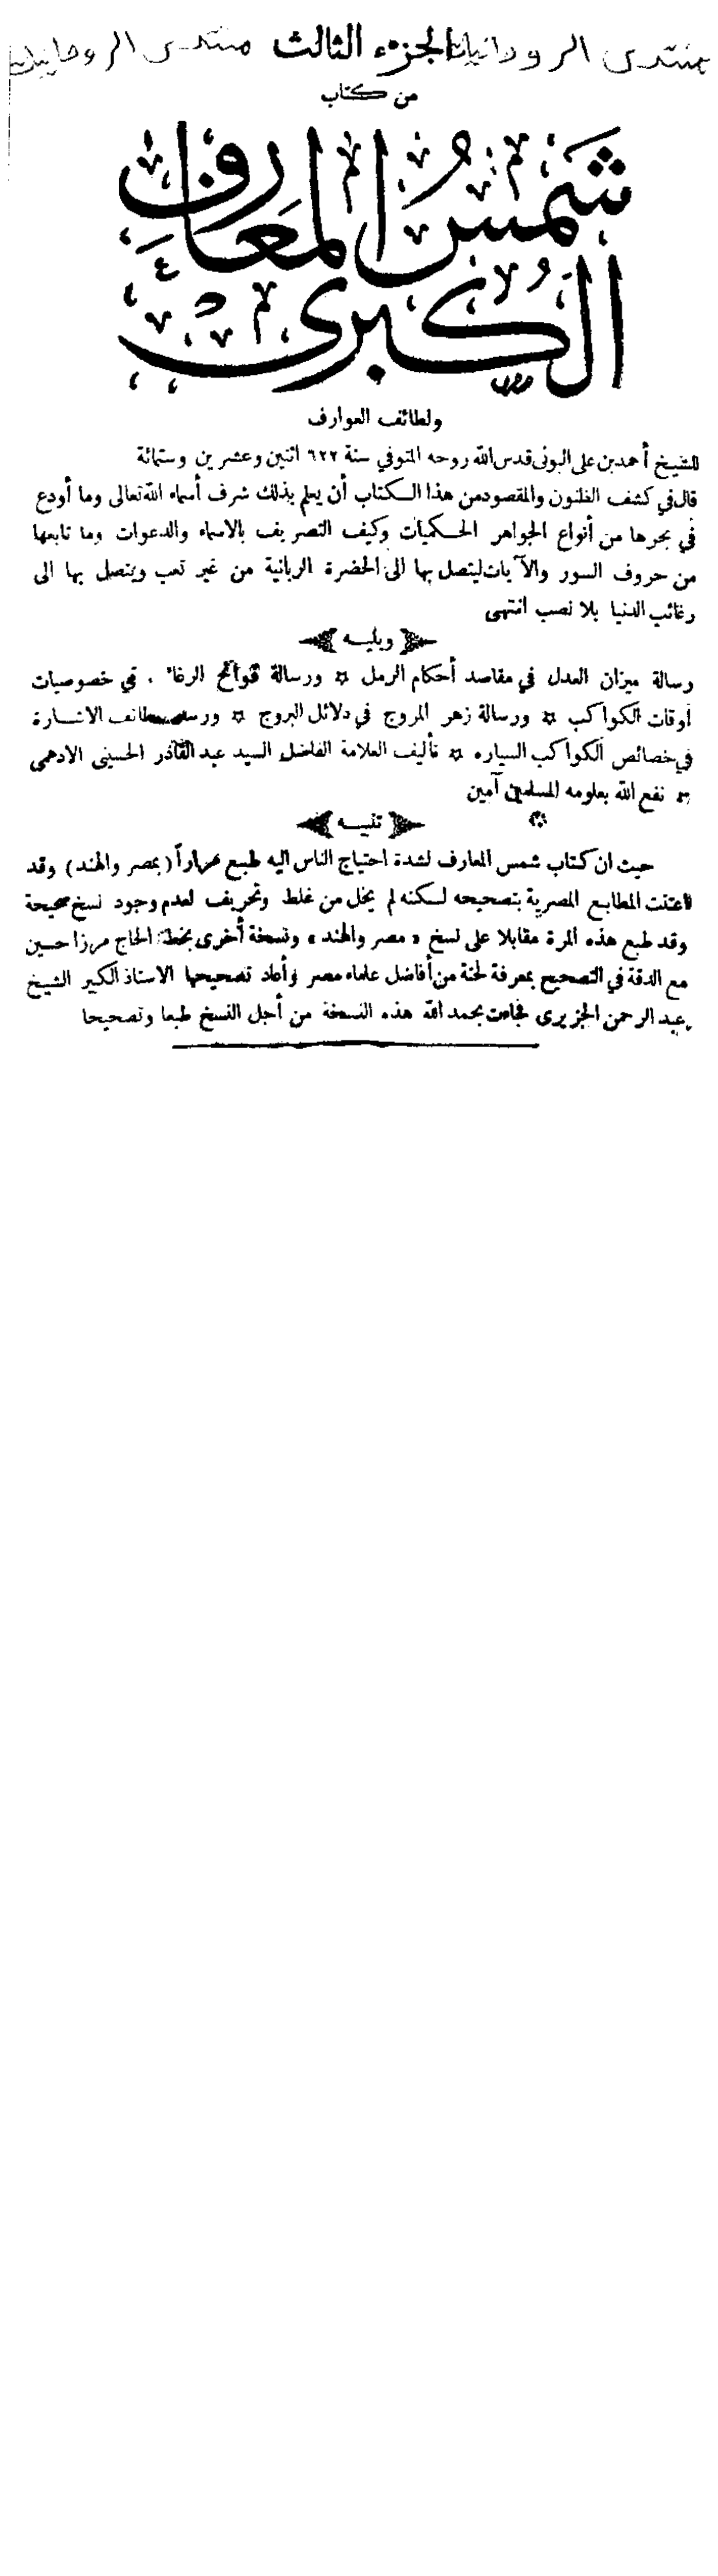 منتدى الروحانيات الجزء الثالث منتدى الروحانيات
من كتاب
شمس المعارف
الكبرى
ولطائف العوارف
للشيخ أحمد بن على البونى قدس الله روحه المتوفي سنة ٦٢٢ اثنين وعشرين وستمائة
قال في كشف الظنون والمقصود من هذا الكتاب أن يعلم بذلك شرف أسماء الله تعالى وما أودع
في بحرها من أنواع الجواهر الحكميات وكيف التصريف بالاسماء والدعوات وما تابعها
من حروف السور والآيات ليتصل بها الى الحضرة الربانية من غير تعب ويتصل بها الى
رغائب الدنيا بلا نصب انتهى
ويليه
رسالة ميزان العدل في مقاصد أحكام الرمل ¤ ورسالة فواتح في خصوصيات
أوقات الكواكب ¤ ورسالة زهر المروج في دلائل البروج ¤ الاشارة
في خصائص الكواكب السياره ¤ تأليف العلامة الفاضل السيد عبد القادر الحسينى الادهمى
¤ نفع الله بعلومه المسلمين آمين
تنبيه
حيث ان كتاب شمس المعارف لشدة احتياج الناس اليه طبع مراراً (بمصر والهند) وقد
اعتنت المطابع المصرية بتصحيحه لكنه لم يخل من غلط وتحريف لعدم وجود نسخ صحيحة
وقد طبع هذه المرة مقابلا على نسخ « مصر والهند » ونسخة أخرى بخط الحاج مرزا حسين
مع الدقة في التصحيح بمعرفة لجنة من أفاضل علماء مصر وأعاد تصحيحها الاستاذ الكبير الشيخ
عبد الرحمن الجزيرى فجاءت بحمد الله هذه النسخة من أجل النسخ طبعا وتصحيحا